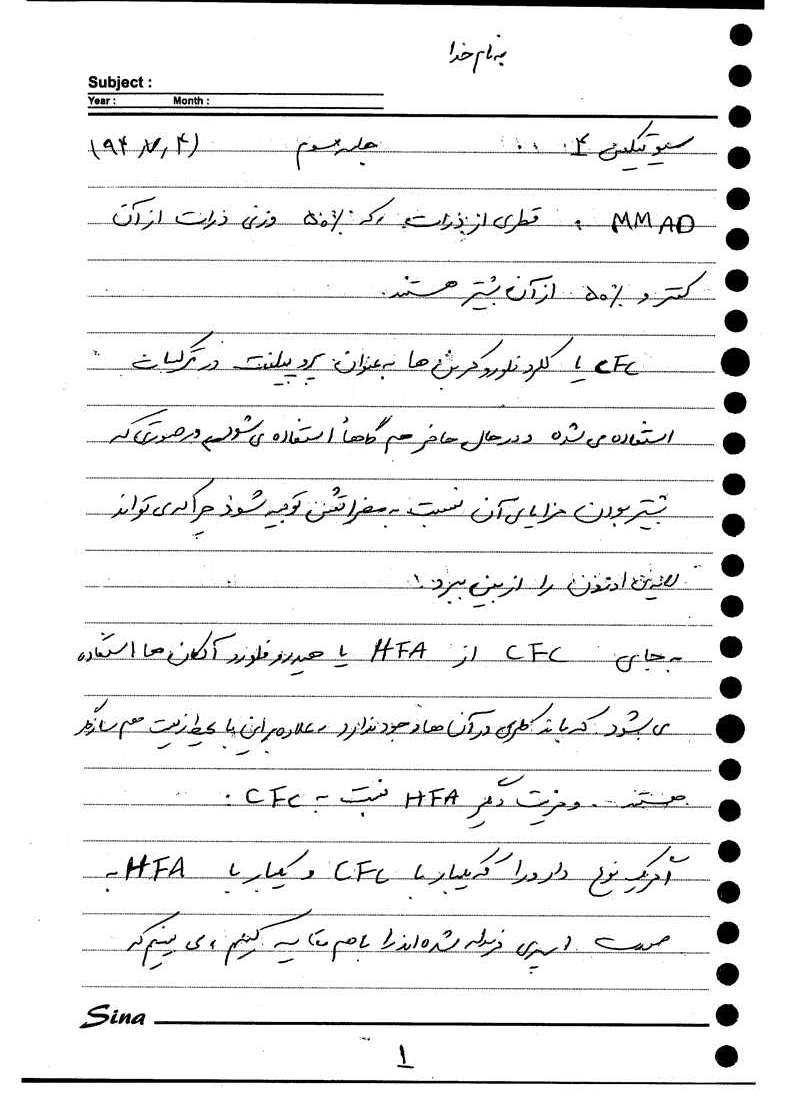 به نام خدا
Subject :
Year : Month :
جلسه سوم (94,7,4)
MMAD : قطری از ذرات که 50% وزنی ذرات از آن
کمتر و 50% از آن بیشتر هستند.
CFC یا کلرو فلورو کربن ها به عنوان پروپیلنت در ترکیبات
استفاده می شده و در حال حاضر هم گاهاً استفاده می شود در صورتی که
بیشتر بودن مزایای آن نسبت به مضراتش توجیه شود چرا که می تواند
لایه ی ازون را از بین ببرد.
به جای CFC از HFA یا هیدرو فلورو آلکان ها استفاده
می شود که باند کلری در آن ها وجود ندارد، علاوه بر این با محیط زیست هم سازگار
هستند. و مزیت دیگر HFA نسبت به CFC:
اگر یک نوع دارو را که یکبار با CFC و یکبار با HFA به
صورت اسپری فرموله شده اند را با هم مقایسه کنیم، می بینیم که
Sina
1